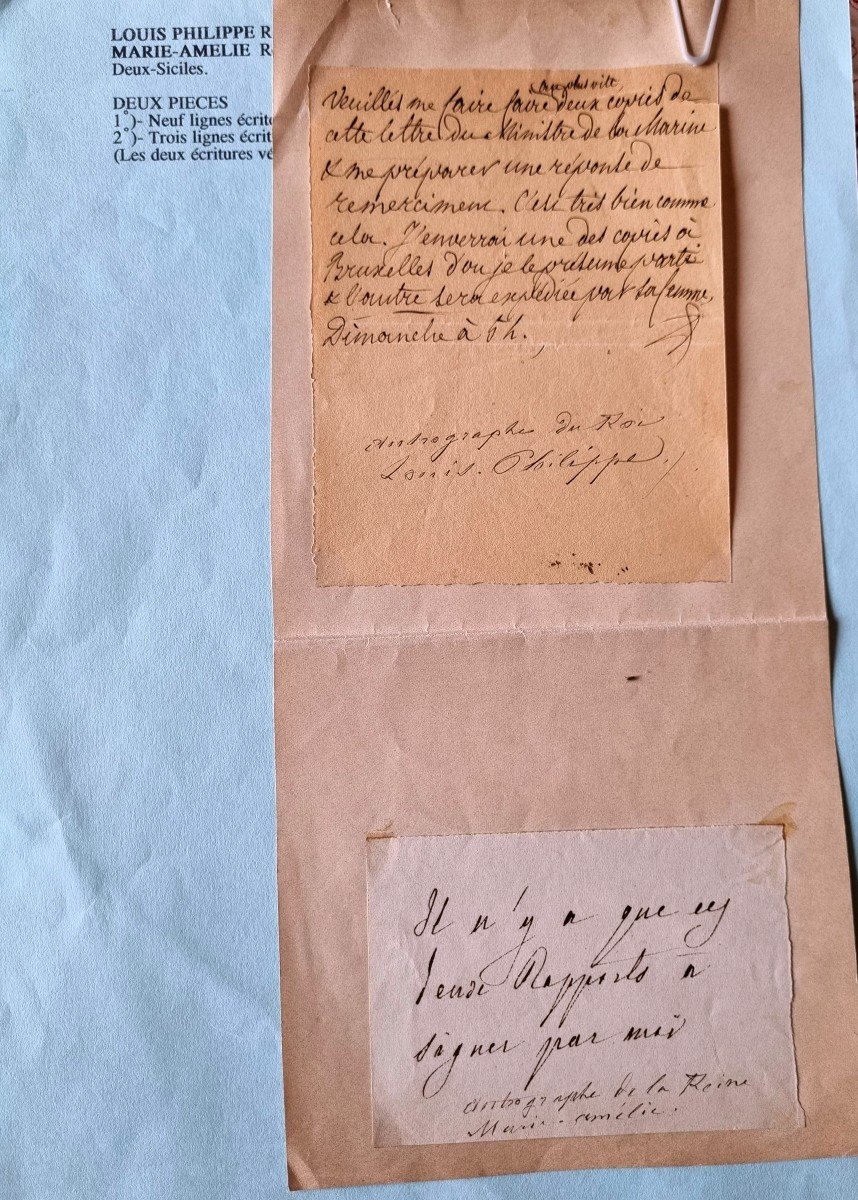 LOUIS PHILIPPE R
MARIE-AMELIE R
Deux-Siciles.
DEUX PIECES
1°)- Neuf lignes écrite
2°)- Trois lignes écrit
(Les deux écritures vé
au plus vite,
Veuillés me faire faire deux copies de
cette lettre du Ministre de la Marine
& me préparer une réponse de
remerciment. C'est très bien comme
cela. J'enverrai une des copies à
Bruxelles d'ou je le présume parti
& l'autre sera expédiée par sa femme,
Dimanche à 6 h.,
Autographe du Roi
Louis-Philippe
Il n'y a que ces
deux Rapports à
signer par moi
Autographe de la Reine
Marie-amélie.